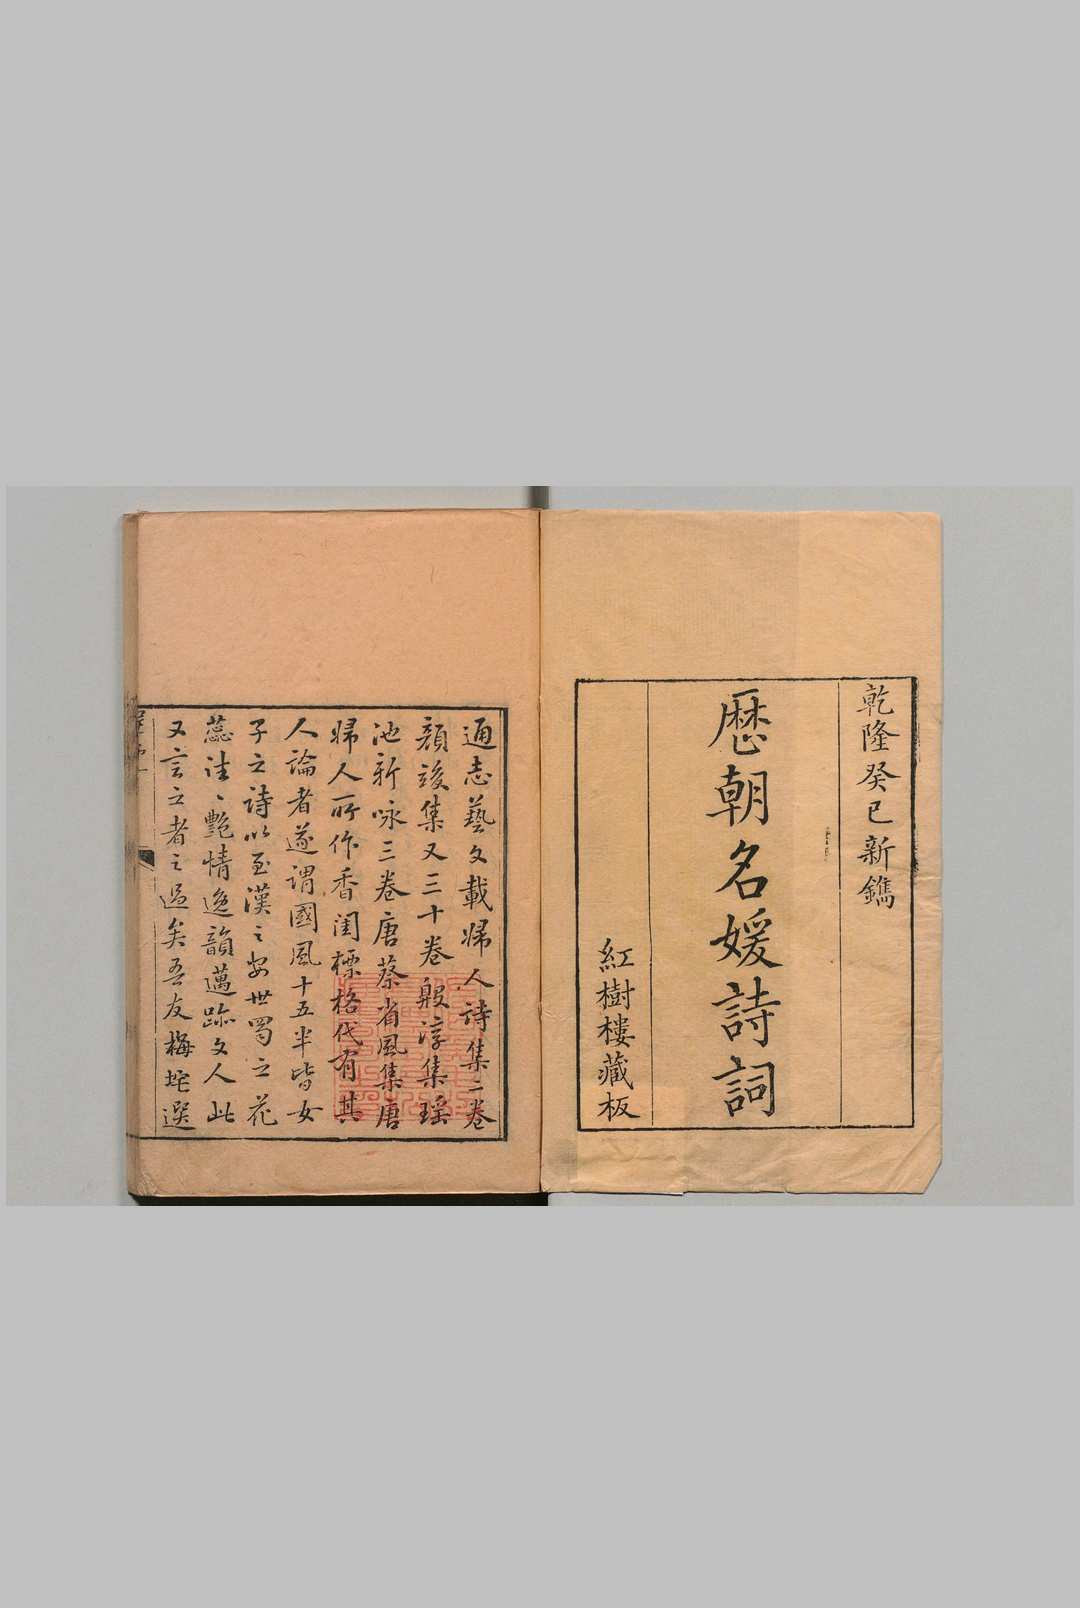 乾隆癸巳新鐫
歷朝名媛詩詞
紅樹樓藏板
通志藝文載婦人詩集二卷
顏竣集又三十卷殷淳集瑤
池新咏三卷唐蔡省風集唐
婦人所作香閨標格代有其
人論者遂謂國風十五半皆女
子之詩以至漢之安世蜀之花
蕊往〻艷情逸韻邁跡文人此
又言之者之過矣吾友梅垞選